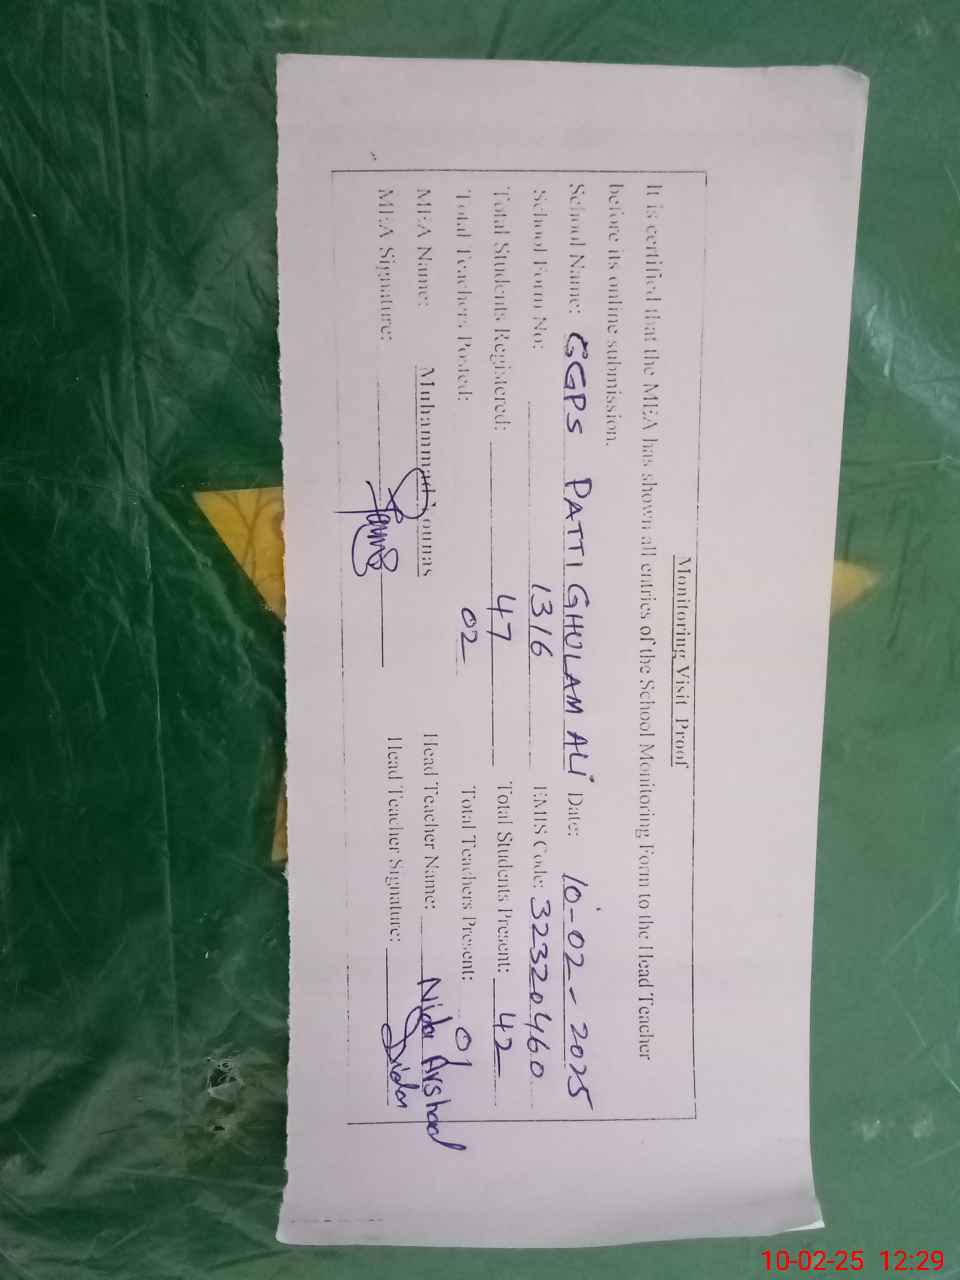 Monitoring Visit Proof
It is certified that the MEA has shown all entries of the School Monitoring Form to the Head Teacher
before its online submission.
School Name: GGPS PATTI GHULAM ALI Date: 10-02-2025
School Form No: 1316 EMIS Code: 32320460
Total Students Registered: 47 Total Students Present: 42
Total Teachers Posted: 02 Total Teachers Present: 01
MEA Name: Muhammad Younas Head Teacher Name: Nida Arshad
MEA Signature: Head Teacher Signature: Nida
10-02-25 12:29